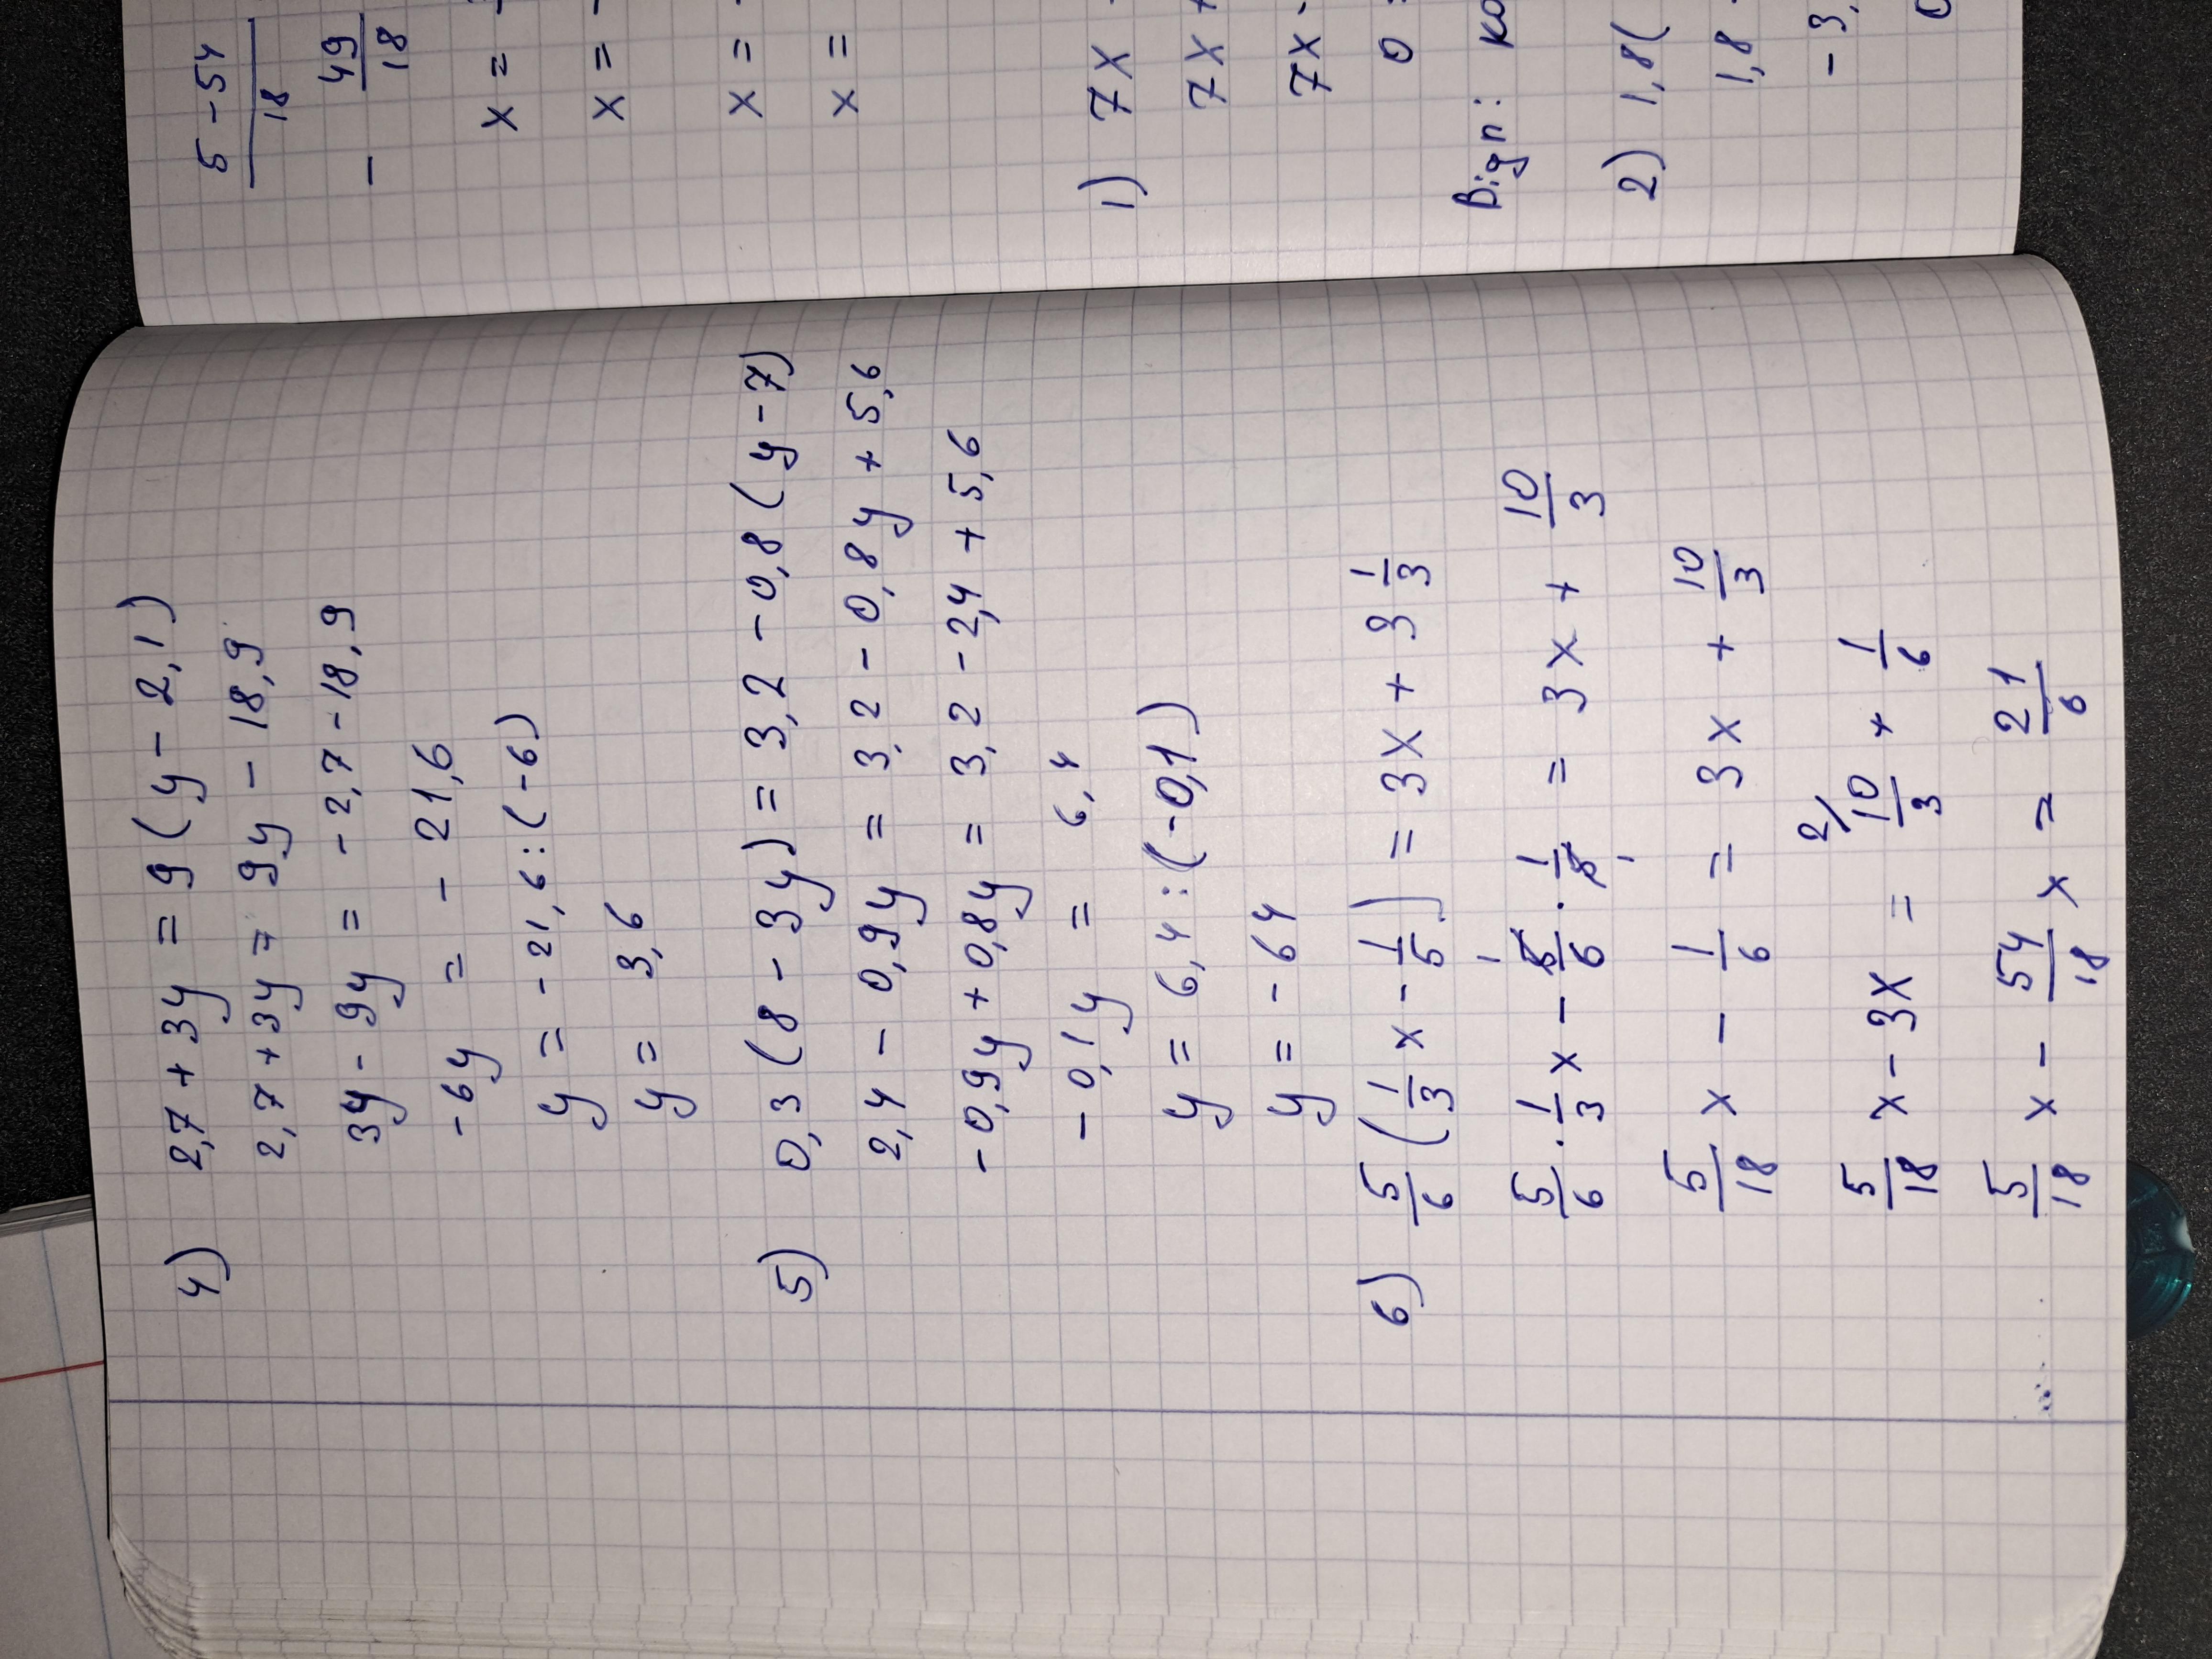 4) 2,7 + 3y = 9 (y - 2,1)
2,7 + 3y = 9y - 18,9
3y - 9y = - 2,7 - 18,9
- 6y = - 21,6
y = - 21,6 : (-6)
y = 3,6
5) 0,3 (8 - 3y) = 3,2 - 0,8 (y - 7)
2,4 - 0,9y = 3,2 - 0,8y + 5,6
- 0,9y + 0,8y = 3,2 - 2,4 + 5,6
- 0,1y = 6,4
y = 6,4 : (-0,1)
y = - 64
6) 5/6 (1/3 x - 1/5) = 3x + 3 1/3
5/6 · 1/3 x - 5/6 · 1/5 = 3x + 10/3
5/18 x - 1/6 = 3x + 10/3
5/18 x - 3x = 2/ 10/3 + 1/6
5/18 x - 54/18 x = 21/6
5 - 54
18
- 49/18
x =
x =
x =
x =
1) 7x
7x
7x -
0
Відп:
2) 1,8(
1,8
- 3,